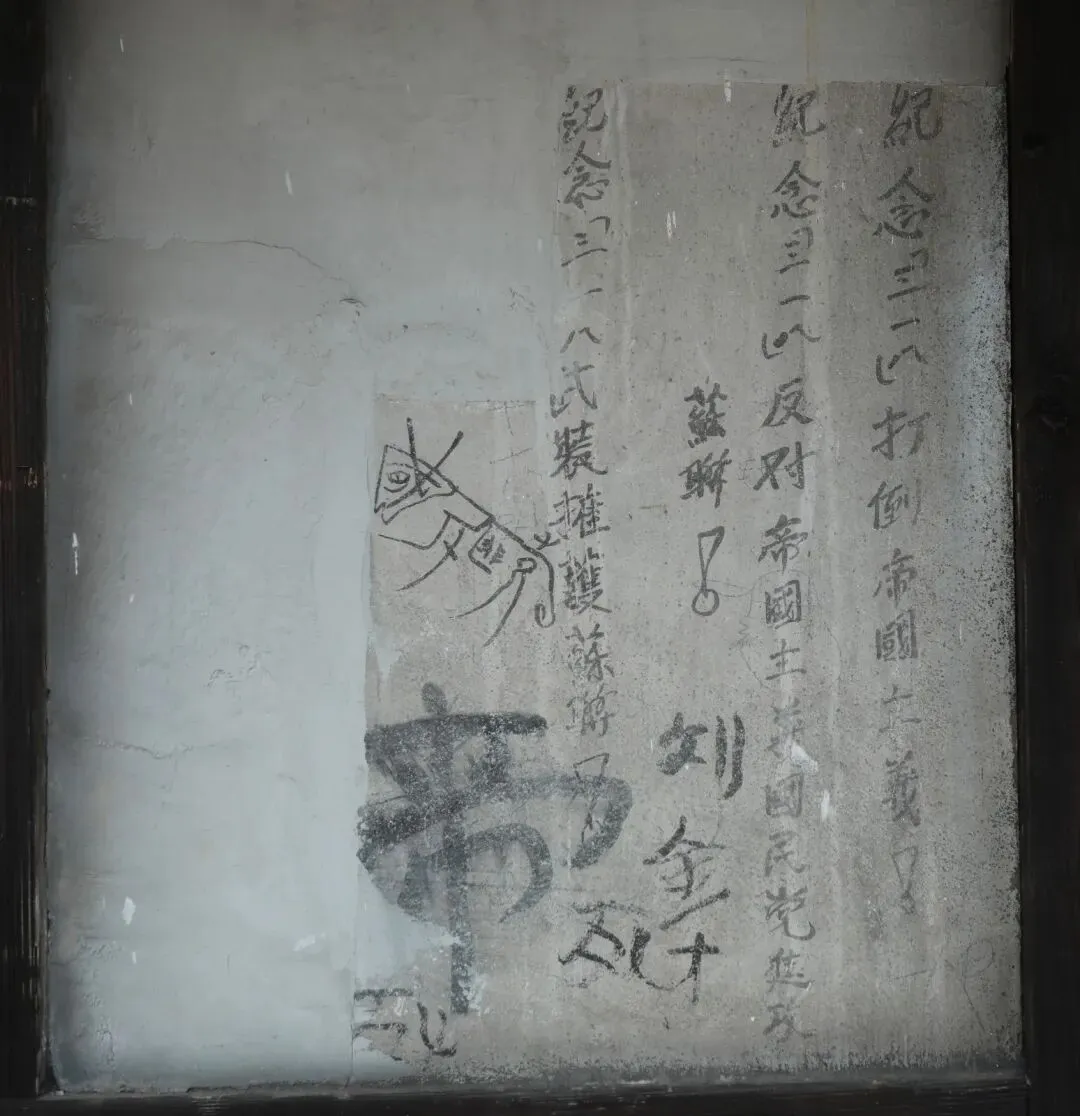 紀念三一八打倒帝國主義！
紀念三一八反對帝國主義國民党進攻
蘇聯！
紀念三一八武裝擁護蘇聯！
刘
金
帝